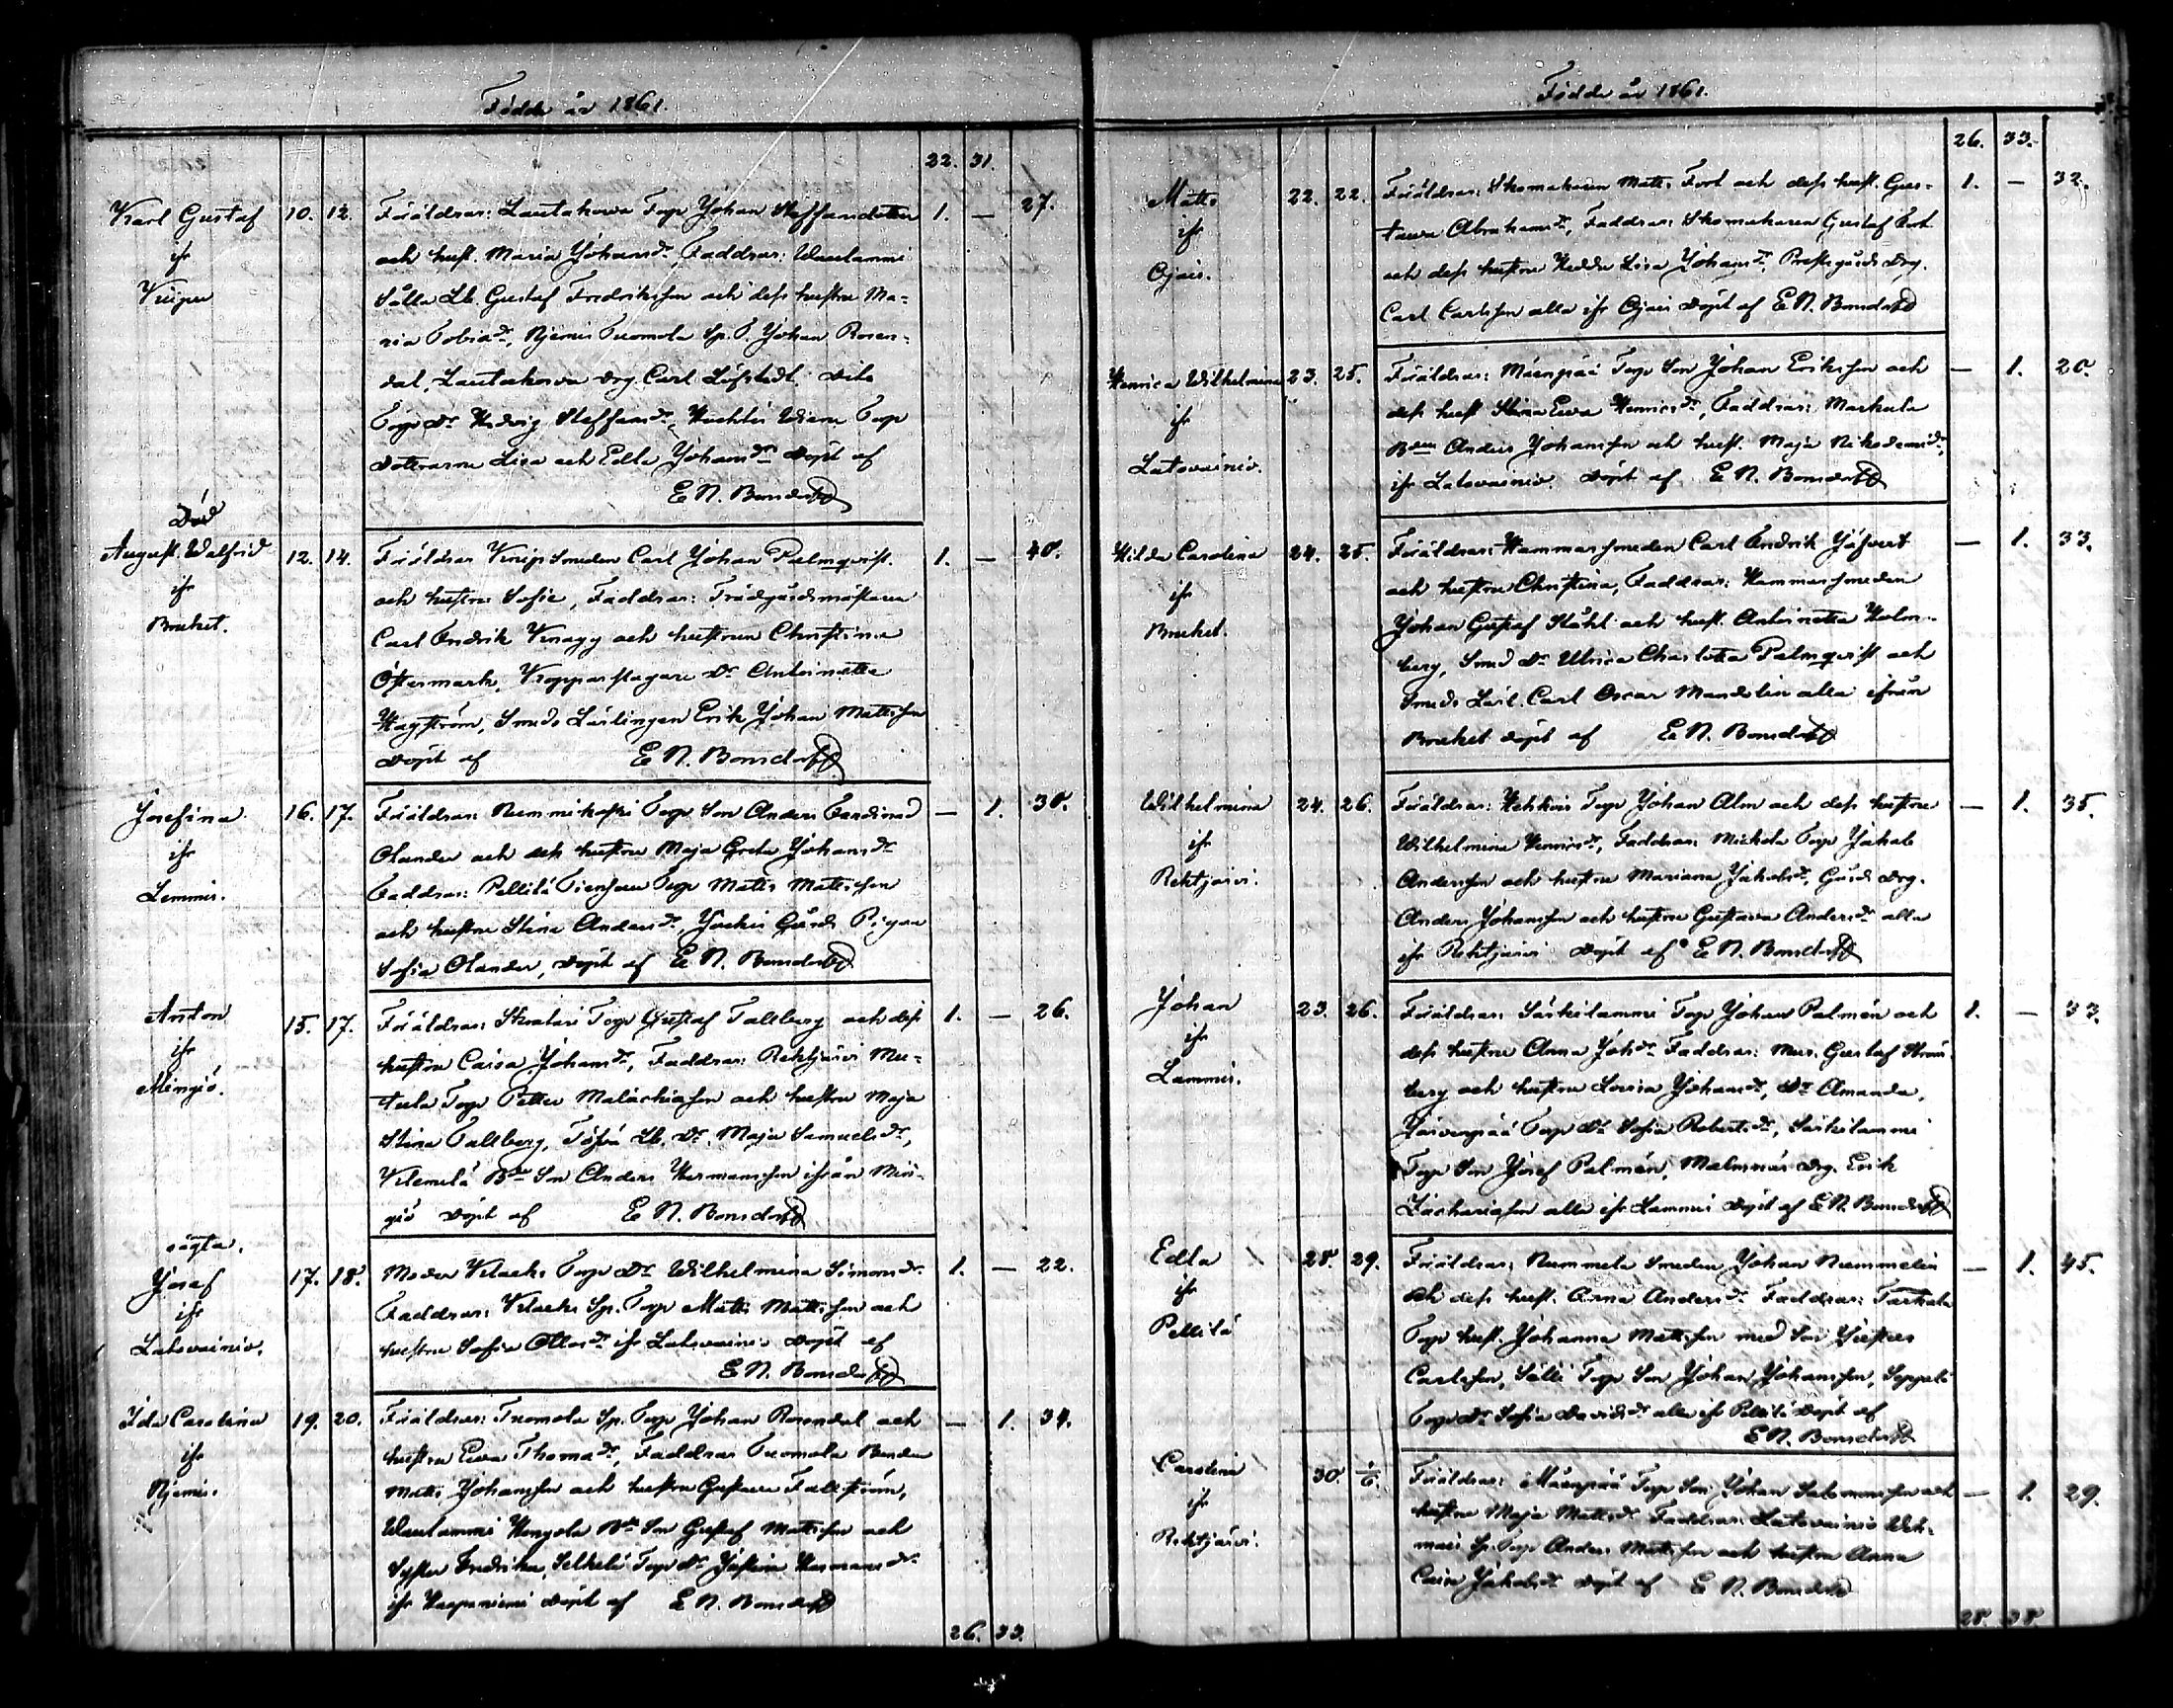 Födde år 1861.
22. 31.
Karl Gustaf 10. 12. Föräldrar: Lautakorva Torp Johan Steffandotter 1. — 27.
ifr och hust. Maria Johansdr. Faddrar: Waulammi
Sälla Lb. Gustaf Fredriksson och dess hustru Ma-
ria Tobiadr, Njemis Tuomola Sp. T. Johan Rosen-
dal, Lautakorva Drg. Carl Löfstedt. Dito
Torp Dr. Hedvig Steffansdr, Torp
Döttrarne Lisa och Edla Johansdr Döpt af
E N. Bonsdorff
Död
August. Walfrid 12. 14. Föräldrar Knipsmeden Carl Johan Palmqvist 1. — 40.
ifr och hustru Sofie, Faddrar: Trädgårdsmästaren
Bruket. Carl Fredrik och hustrun Christina
Östermark, Kopparslagare Dr Antoinetta
Hagström, Smeds Lärlingen Erik Johan Mattsson
Döpt af E N. Bonsdorff
Josefina 16. 17. Föräldrar: Torp Son Anders Ferdinand — 1. 30.
ifr Olander och dess hustru Maja Greta Johansdr
Lemmis. Faddrar: Pellilä Torp Matts Mattsson
och hustru Stina Andersdr, Gårds Pigan
Sofia Olander, Döpt af E N. Bonsdorff
Anton 15. 17. Föräldrar: Torp Gustaf Tallberg och dess 1. — 26.
ifr hustru Caisa Johansdr, Faddrar: Rehtjärvi
Mingiö. Torp Petter Malachiasson och hustru Maja
Stina Tallberg, Lb. Dr. Maja Samuelsdr,
Klemelä Bde Son Anders Hermansson ifrån Min-
giö Döpt af E N. Bonsdorff
oägta.
Josef 17. 18. Moder Torp Dr Wilhelmina Simonsdr. 1. — 22.
ifr Faddrar: Sp. Torp Matts Mattsson och
Latovainio. hustru Sofia ifr Latovainio Döpt af
E N. Bonsdorff
Ida Carolina 19. 20. Föräldrar: Tuomola Sp. Torp Johan Rosendal och — 1. 34.
ifr hustru Ewa Thomadr, Faddrar Tuomola Bonden
Njemis. Matts Johansson och hustru Gustava Fallström,
Waulammi Bde Son Gustaf Mattsson och
Syster Fredrika, Torp Dr Justina Hermansdr
ifr Haapaniemi Döpt af E N. Bonsdorff
26. 33.
Födde år 1861.
26. 33.
Matts 22. 22. Föräldrar: Skomakaren Matts Fort och dess hust. Gus- 1. — 32.
ifr tava Abrahamsdr, Faddrar: Skomakaren Gustaf Fort
Ojais. och dess hustru Hedda Lisa Johansdr. Prestgårds Drg.
Carl Carlsson alla ifr Ojais Döpt af E N. Bonsdorff
Henrica Wilhelmina 23. 25. Föräldrar: Mäenpää Torp Son Johan Eriksson och — 1. 20.
ifr dess hust Stina Ewa Henricsdr, Faddrar: Markula
Latovainio. Bden Anders Johansson och hust. Maja Nikodemidr,
ifr Latovainio. Döpt af E N. Bonsdorff
Hilda Carolina 24. 25. Föräldrar: Hammarsmeden Carl Fredrik — 1. 33.
ifr och hustru Christina, Faddrar: Hammarsmeden
Bruket. Johan Gustaf Ståhl och hust. Antoinetta Holm-
berg, Smed Dr Ulrica Charlotta Palmqvist och
Smeds Lärl. Carl Oscar Mandelin alla ifrån
Bruket döpt af E N. Bonsdorff
Wilhelmina 24. 26. Föräldrar: Torp Johan Alm och dess hustru — 1. 35.
ifr Wilhelmina Henricsdr, Faddrar: Mickola Torp Jakob
Rehtjärvi. Andersson och hustru Mariana Jakobsdr, Gårds Drg.
Anders Johansson och hustru Gustava Andersdr alla
ifr Rehtjärvi Döpt af E N. Bonsdorff
Johan 23. 26. Föräldrar: Särkilammi Torp Johan Palmén och 1. — 33.
ifr dess hustru Anna Johdr Faddrar: Mur. Gustaf Ström-
Lammis. berg och hustru Lovisa Johansdr, Dr Amanda,
Järvenpää Torp Dr Sofia Robertsdr, Särkilammi
Torp Son Josef Palmén, Malmnäs Drg. Erik
Zachariasson alla ifr Lammis Döpt af E N. Bonsdorff
Edla 28. 29. Föräldrar: Nummela Smeden Johan Nummelin — 1. 45.
ifr och dess hust. Anna Andersdr Faddrar:
Pellilä Torp hust. Johanna Mattsson med Son
Carlsson, Torp Son Johan Johansson, Seppälä
Torp Dr Sofia Davidsdr alla ifr Pellilä Döpt af
E N. Bonsdorff
Carolina 30. 1/6. Föräldrar: Mäenpää Torp Son Johan Salomonsson och — 1. 29.
ifr hustru Maja Mattsdr. Faddrar: Latovainio
Rehtjärvi. Sp. Torp Anders Mattsson och hustru Anna
Caisa Jakobsdr Döpt af E N. Bonsdorff
28. 38.